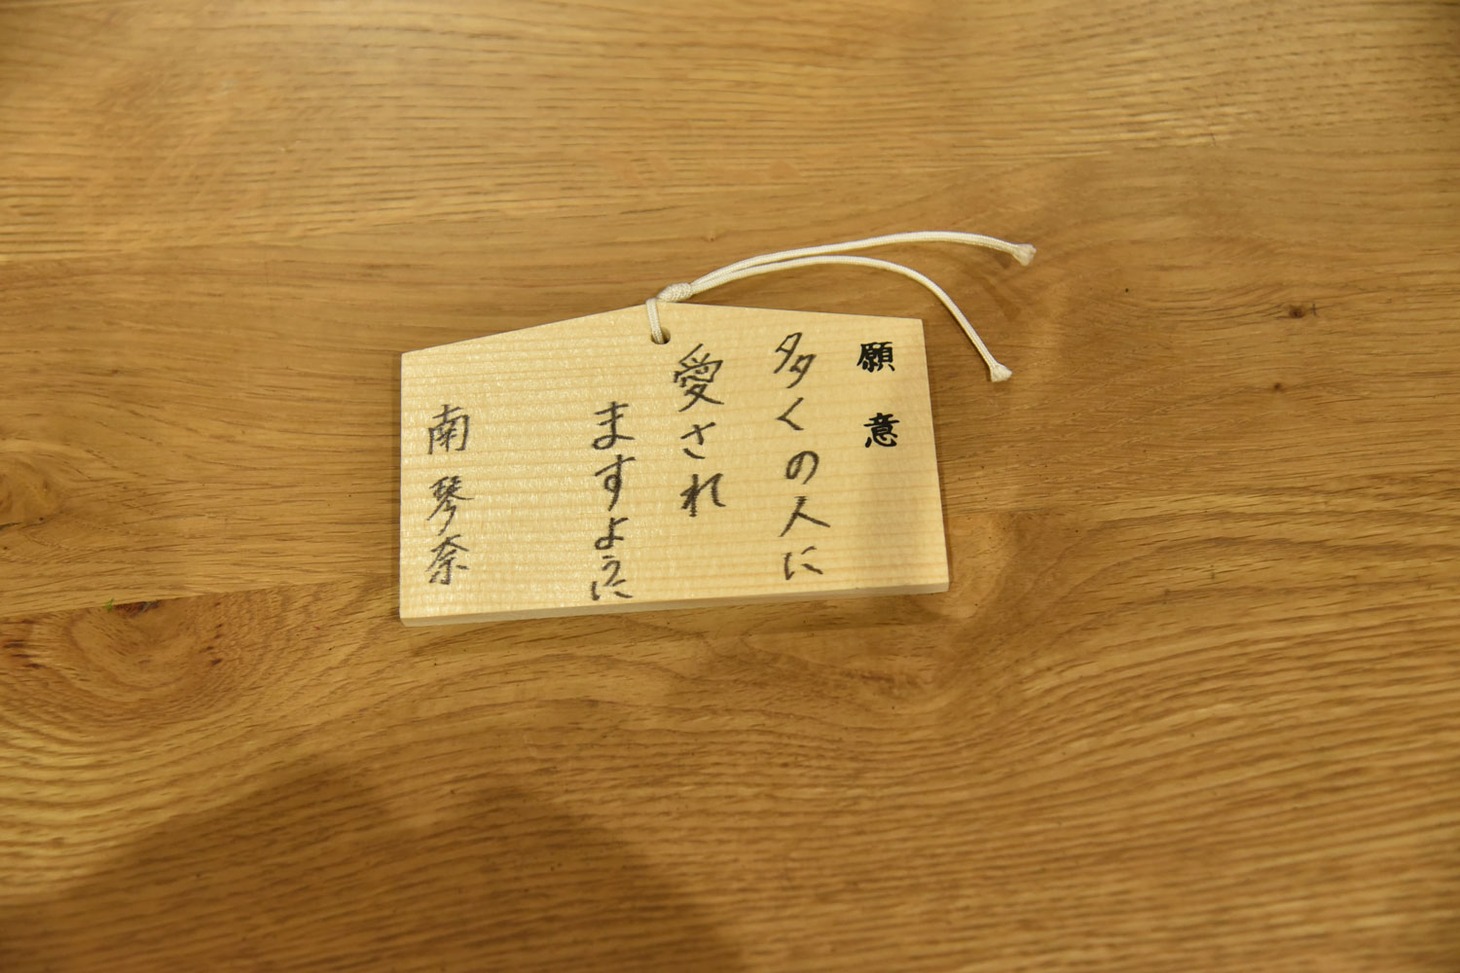 願意
多くの人に
愛され
ますように
南 琴奈